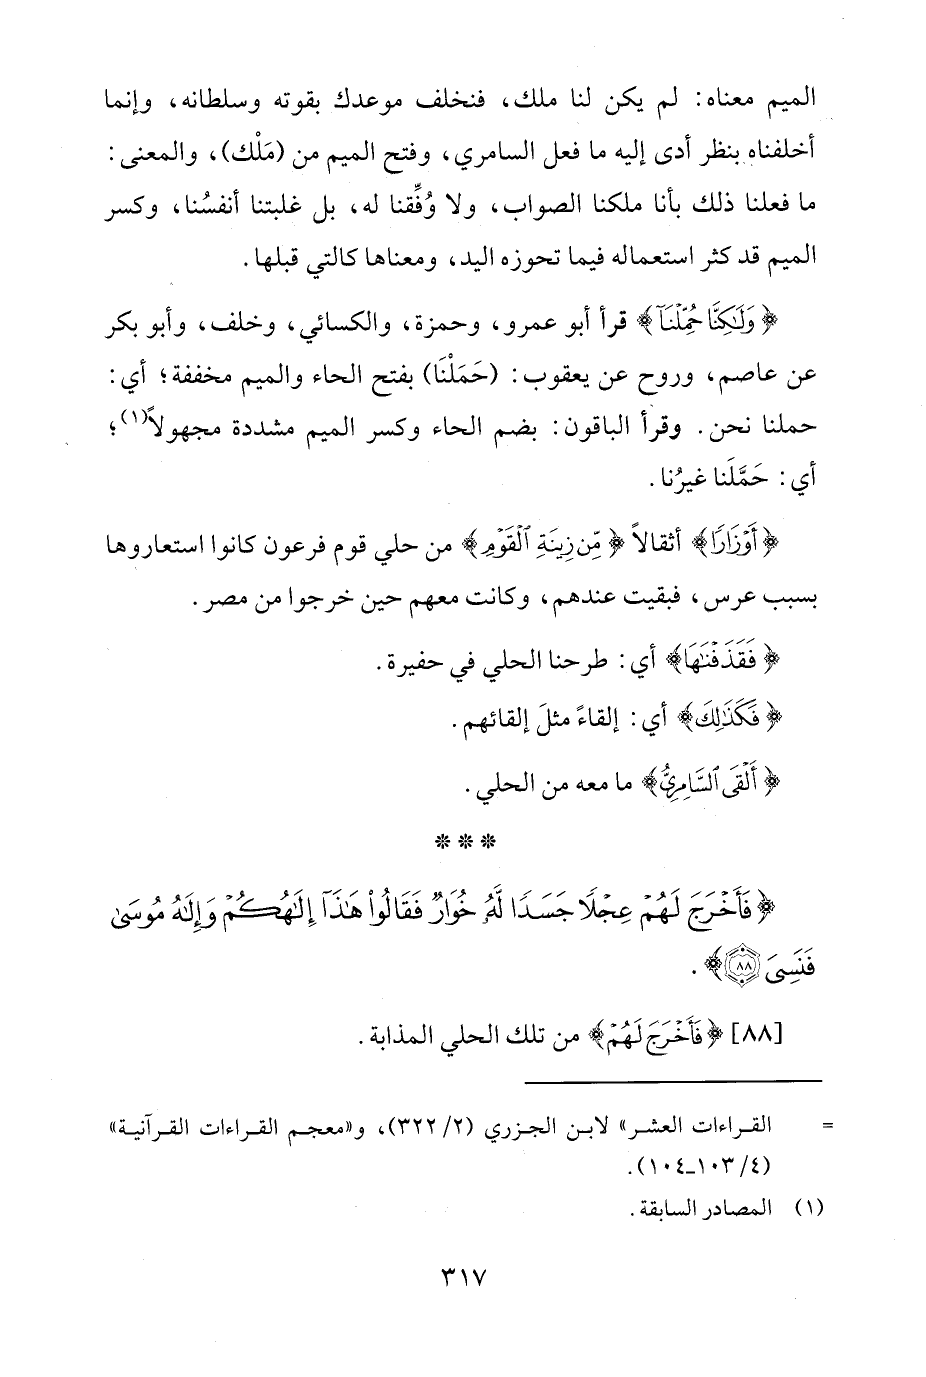 الميم معناه: لم يكن لنا ملك، فنخلف موعدك بقوته وسلطانه، وإنما
أخلفناه بنظر أدى إليه ما فعل السامري، وفتح الميم من (مَلْك)، والمعنى:
ما فعلنا ذلك بأنا ملكنا الصواب، ولا وُفِّقنا له، بل غلبتنا أنفسُنا، وكسر
الميم قد كثر استعماله فيما تحوزه اليد، ومعناها كالتي قبلها.
﴿وَلَٰكِنَّا حُمِّلْنَآ﴾ قرأ أبو عمرو، وحمزة، والكسائي، وخلف، وأبو بكر
عن عاصم، وروح عن يعقوب: (حَمَلْنَا) بفتح الحاء والميم مخففة؛ أي:
حملنا نحن. وقرأ الباقون: بضم الحاء وكسر الميم مشددة مجهولاً(١)؛
أي: حَمَّلَنا غيرُنا.
﴿أَوْزَارًا﴾ أثقالاً ﴿مِّن زِينَةِ ٱلْقَوْمِ﴾ من حلي قوم فرعون كانوا استعاروها
بسبب عرس، فبقيت عندهم، وكانت معهم حين خرجوا من مصر.
﴿فَقَذَفْنَٰهَا﴾ أي: طرحنا الحلي في حفيرة.
﴿فَكَذَٰلِكَ﴾ أي: إلقاءً مثلَ إلقائهم.
﴿أَلْقَى ٱلسَّامِرِيُّ﴾ ما معه من الحلي.
* * *
﴿فَأَخْرَجَ لَهُمْ عِجْلًا جَسَدًا لَّهُۥ خُوَارٌ فَقَالُوا۟ هَٰذَآ إِلَٰهُكُمْ وَإِلَٰهُ مُوسَىٰ
فَنَسِىَ ٨٨﴾.
[٨٨] ﴿فَأَخْرَجَ لَهُمْ﴾ من تلك الحلي المذابة.
= القراءات العشر» لابن الجزري (٢/ ٣٢٢)، و«معجم القراءات القرآنية»
(٤/ ١٠٣-١٠٤).
(١) المصادر السابقة.
٣١٧